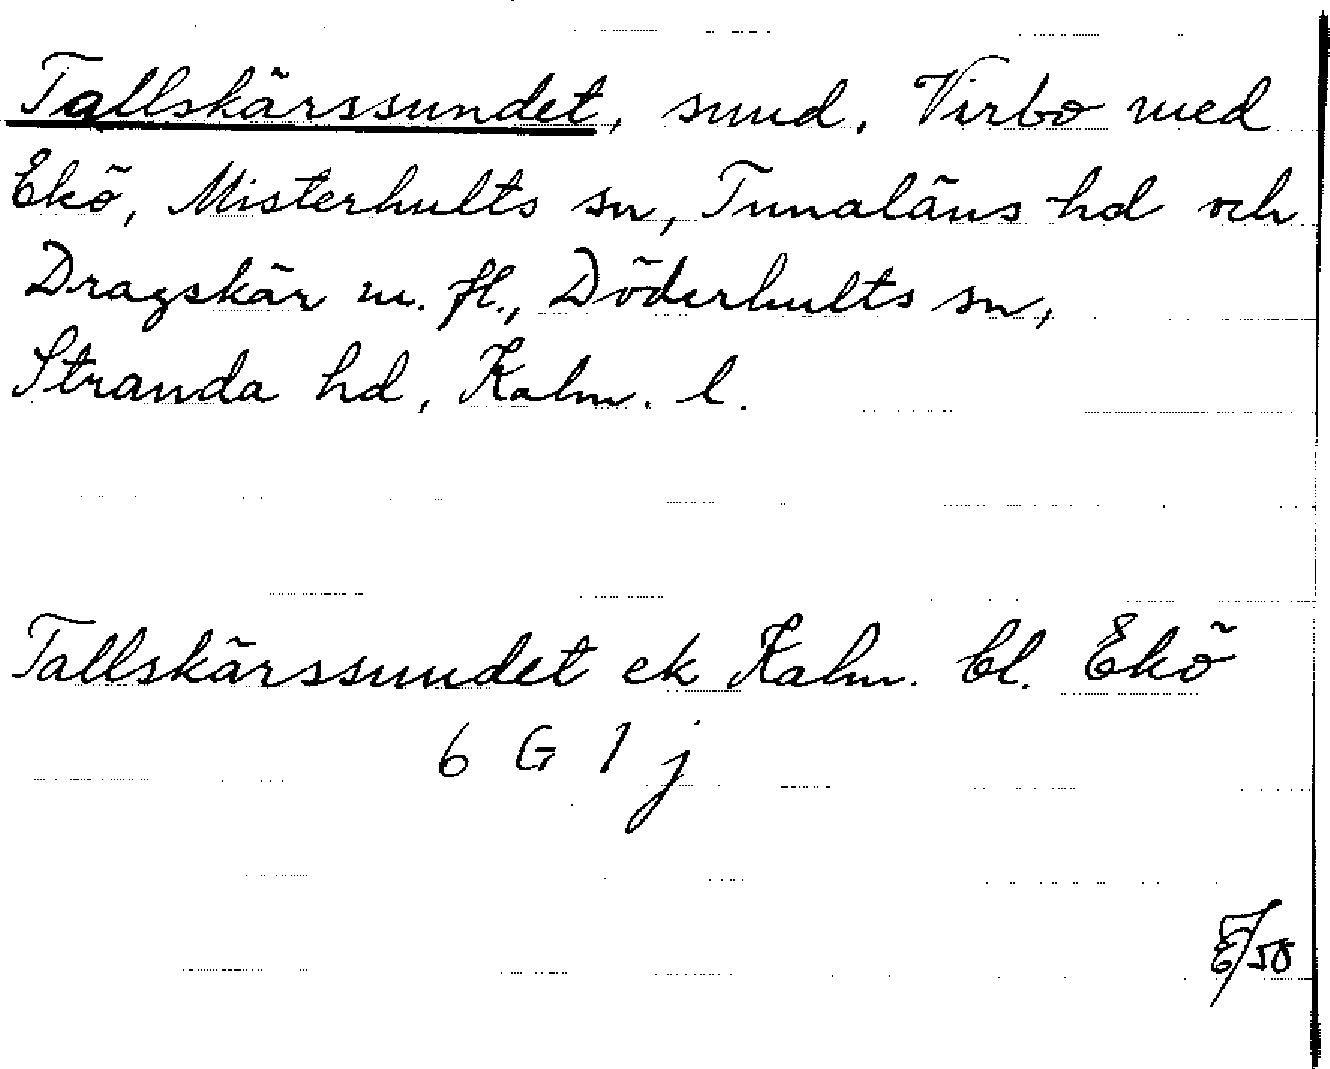 Tallskärssundet, sund, Virbo med
Ekö, Misterhults sn, Tunaläns hd och
Dragskär m. fl., Döderhults sn,
Stranda hd, Kalm. l.
Tallskärssundet ek Kalm. bl. Ekö
6 G 1 j